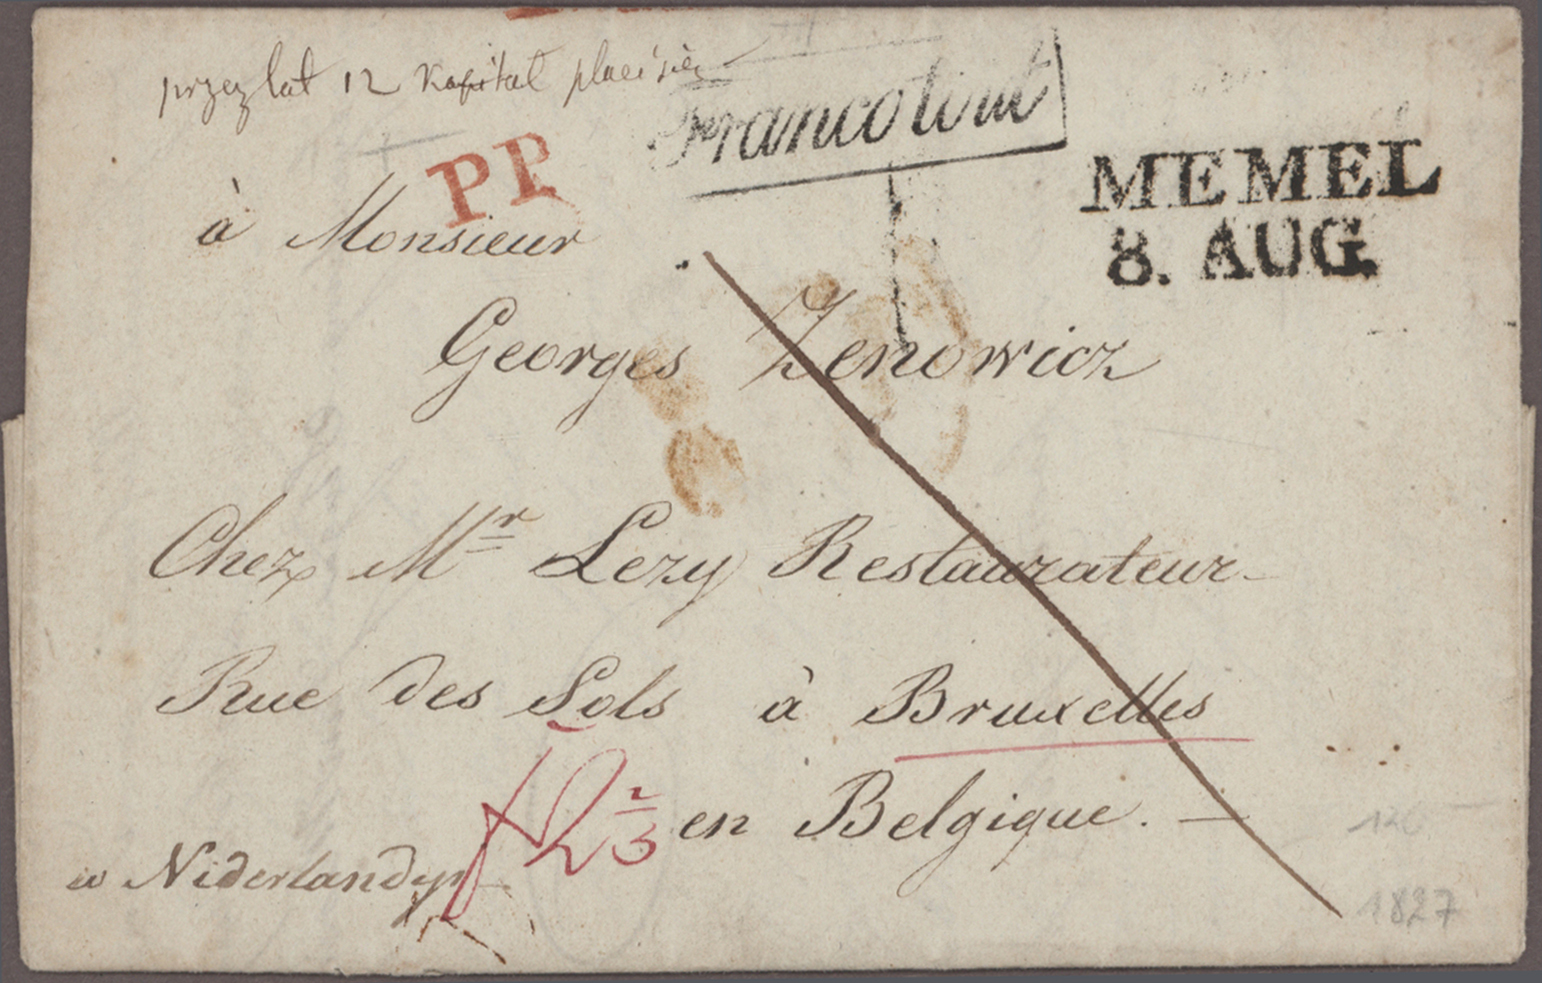 przez lat 12 Kapitał placi się
Francotirt
P.P.
MEMEL
8. AUG.
à Monsieur
Georges Zenowicz
Chez Mr Lezy Restaurateur
Rue des Sols à Bruxelles
2 2/3
en Belgique. —
w Niderlandyi
120
1827